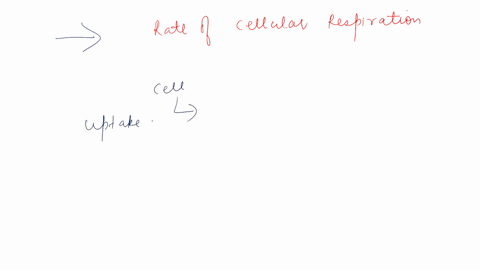 Rate of Cellular Respiration
Cell
Uptake.